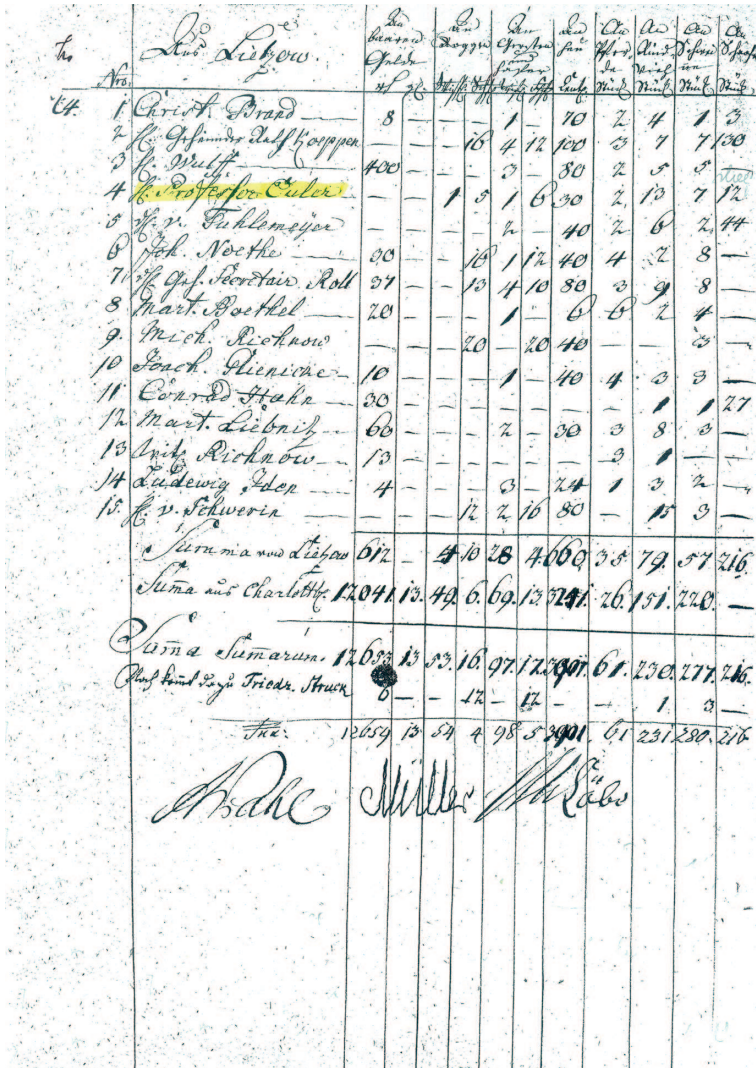 Aus Lietzow.
An baaren Gelde An Roggen An Gersten und Haafer An Heu An Pferde An Rind Vieh An Schwein An Schaafe
Nro. Stück Stück Stück Stück
1 Christ. Brand — 8 — — — 1 — 70 2 4 1 3
2 H. Geheimder Rath Koeppen — — — 16 4 12 100 3 7 7 130
3 H. Wulff — 400 — — — 3 — 80 2 5 5
4 H. Professor Euler — — 1 5 1 6 30 2 13 7 12
5 H. v. Fuhlemeyer — — — — 2 — 40 2 6 2 44
6 Joh. Noethe — 30 — — 16 1 12 40 4 2 8 —
7 H. Geh. Secretair Roll 37 — — 13 4 10 80 3 9 8 —
8 Mart. Boethel — 20 — — — 1 — 6 6 2 4 —
9. Mich. Richnow — — — 20 — 20 40 — — 3 —
10 Joach. Glienicke — 10 — — — 1 — 40 4 3 3 —
11 Conrad Hahn — 30 — — — — — — — 1 1 27
12 Mart. Liebnitz — 60 — — — 2 — 30 3 8 3 —
13 Fritz Richnow — 13 — — — — — — 3 1 — —
14 Ludewig Iden — 4 — — — 3 — 24 1 3 2 —
15. H. v. Schwerin — — — 12 2 16 80 — 15 3 —
Summa von Lietzow 612 — 4 10 28 4. 660 35 79. 57 216
Suma aus Charlottb. 12041. 13. 49. 6. 69. 13. 26. 151. 220. —
Suma Sumarum. 12653 13 53. 16. 97. 17. 61. 230. 277. 216.
Noch komt dazu Friedr. Struck 6 — — 12 — 12 — — 1. 3. —
12659 13 54 4 98 5 61 231 280. 216
Müller